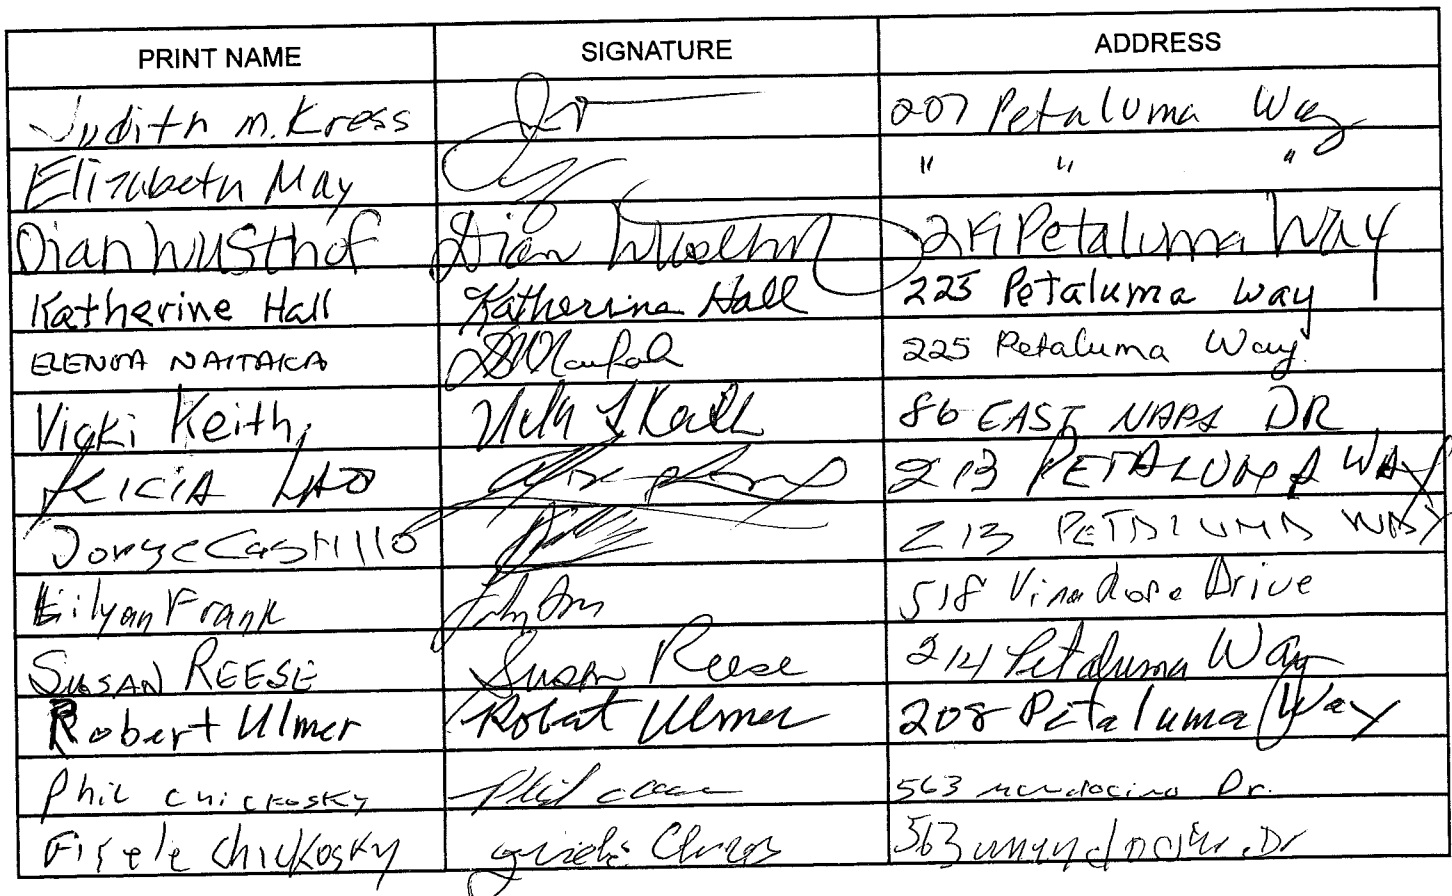 PRINT NAME SIGNATURE ADDRESS
Judith M. Kress 207 Petaluma Way
Elizabeth May " " "
Dian Wusthof Dian 219 Petaluma Way
Katherine Hall Katherine Hall 225 Petaluma Way
NAITAKA 225 Petaluma Way
Vicki Keith 86 EAST NAPA DR
LAO 213 PETALUMA WAY
Jorge Castillo 213 PETALUMA WAY
Frank 518 Drive
SUSAN REESE Susan Reese 214 Petaluma Way
Robert Ulmer Robert Ulmer 208 Petaluma Way
Phil Chickosky Phil 563 Mendocino Dr.
Gisele Chickosky 563 Dr